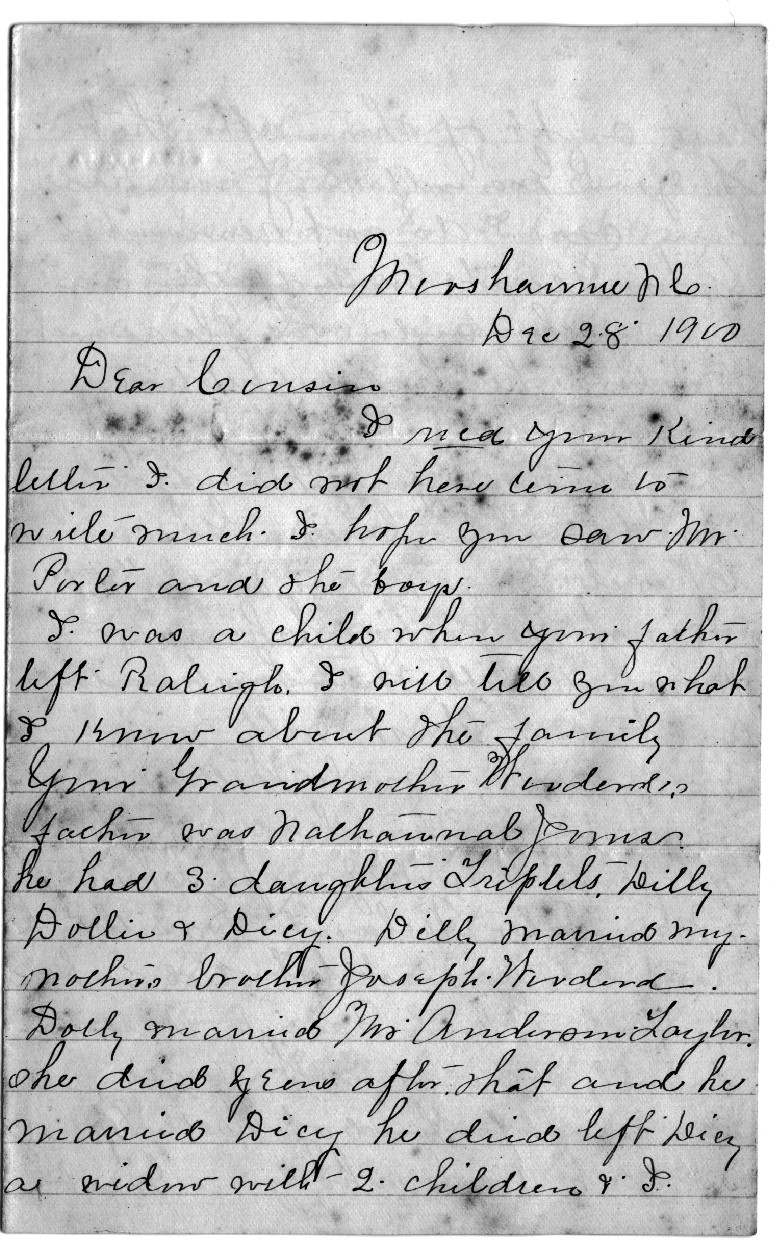 N.C.
Dec 28 1900
Dear Cousin
I recd your Kind
letter I did not have time to
write much. I hope you saw Mr.
Porter and the boys.
I was a child when your father
left Raleigh. I will tell you what
I know about the family
Your Grandmother Wooderd's
father was Nathannal Jones.
he had 3 daughters Triplets, Dilly
Dollie & Dicy. Dilly married my
mothers brother Joseph Wooderd.
Dolly married Mr Anderson Taylor.
she died years after that and he
married Dicy he died left Dicy
a widow with 2 children & I